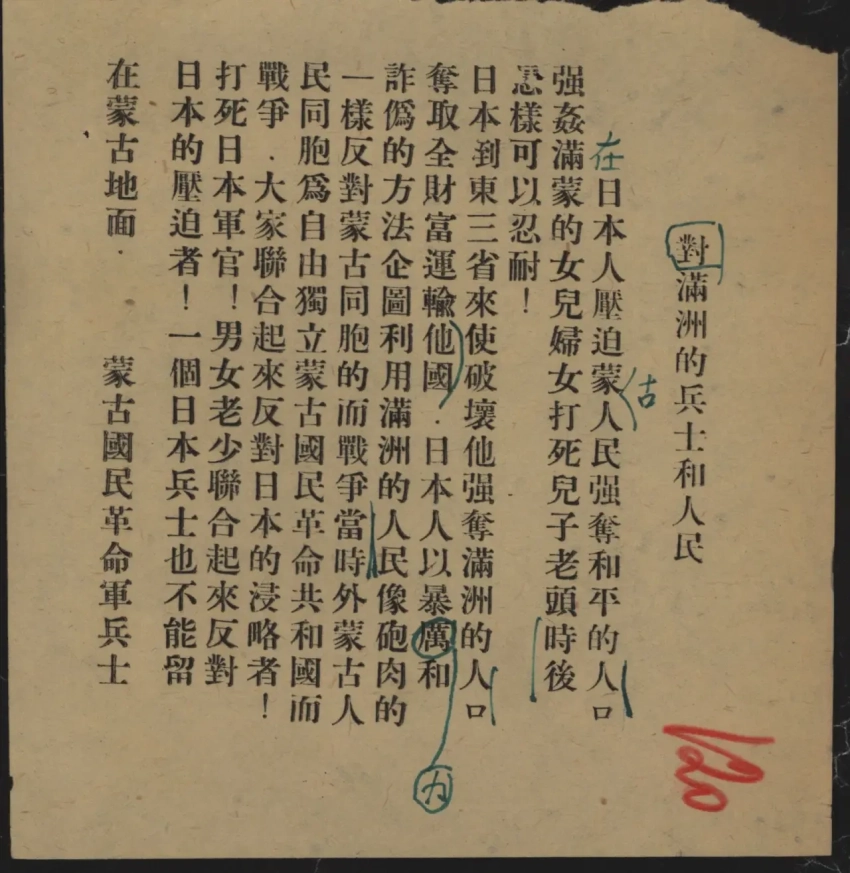 對滿洲的兵士和人民
在日本人壓迫蒙人民强奪和平的人口
古
强姦滿蒙的女兒婦女打死兒子老頭時後
怎樣可以忍耐!
日本到東三省來使破壞他强奪滿洲的人口
奪取全財富運輸他國.日本人以暴厲和
力
詐僞的方法企圖利用滿洲的人民像砲肉的
一樣反對蒙古同胞的而戰爭當時外蒙古人
民同胞爲自由獨立蒙古國民革命共和國而
戰爭.大家聯合起來反對日本的浸略者!
打死日本軍官!男女老少聯合起來反對
日本的壓迫者!一個日本兵士也不能留
在蒙古地面.
蒙古國民革命軍兵士
120